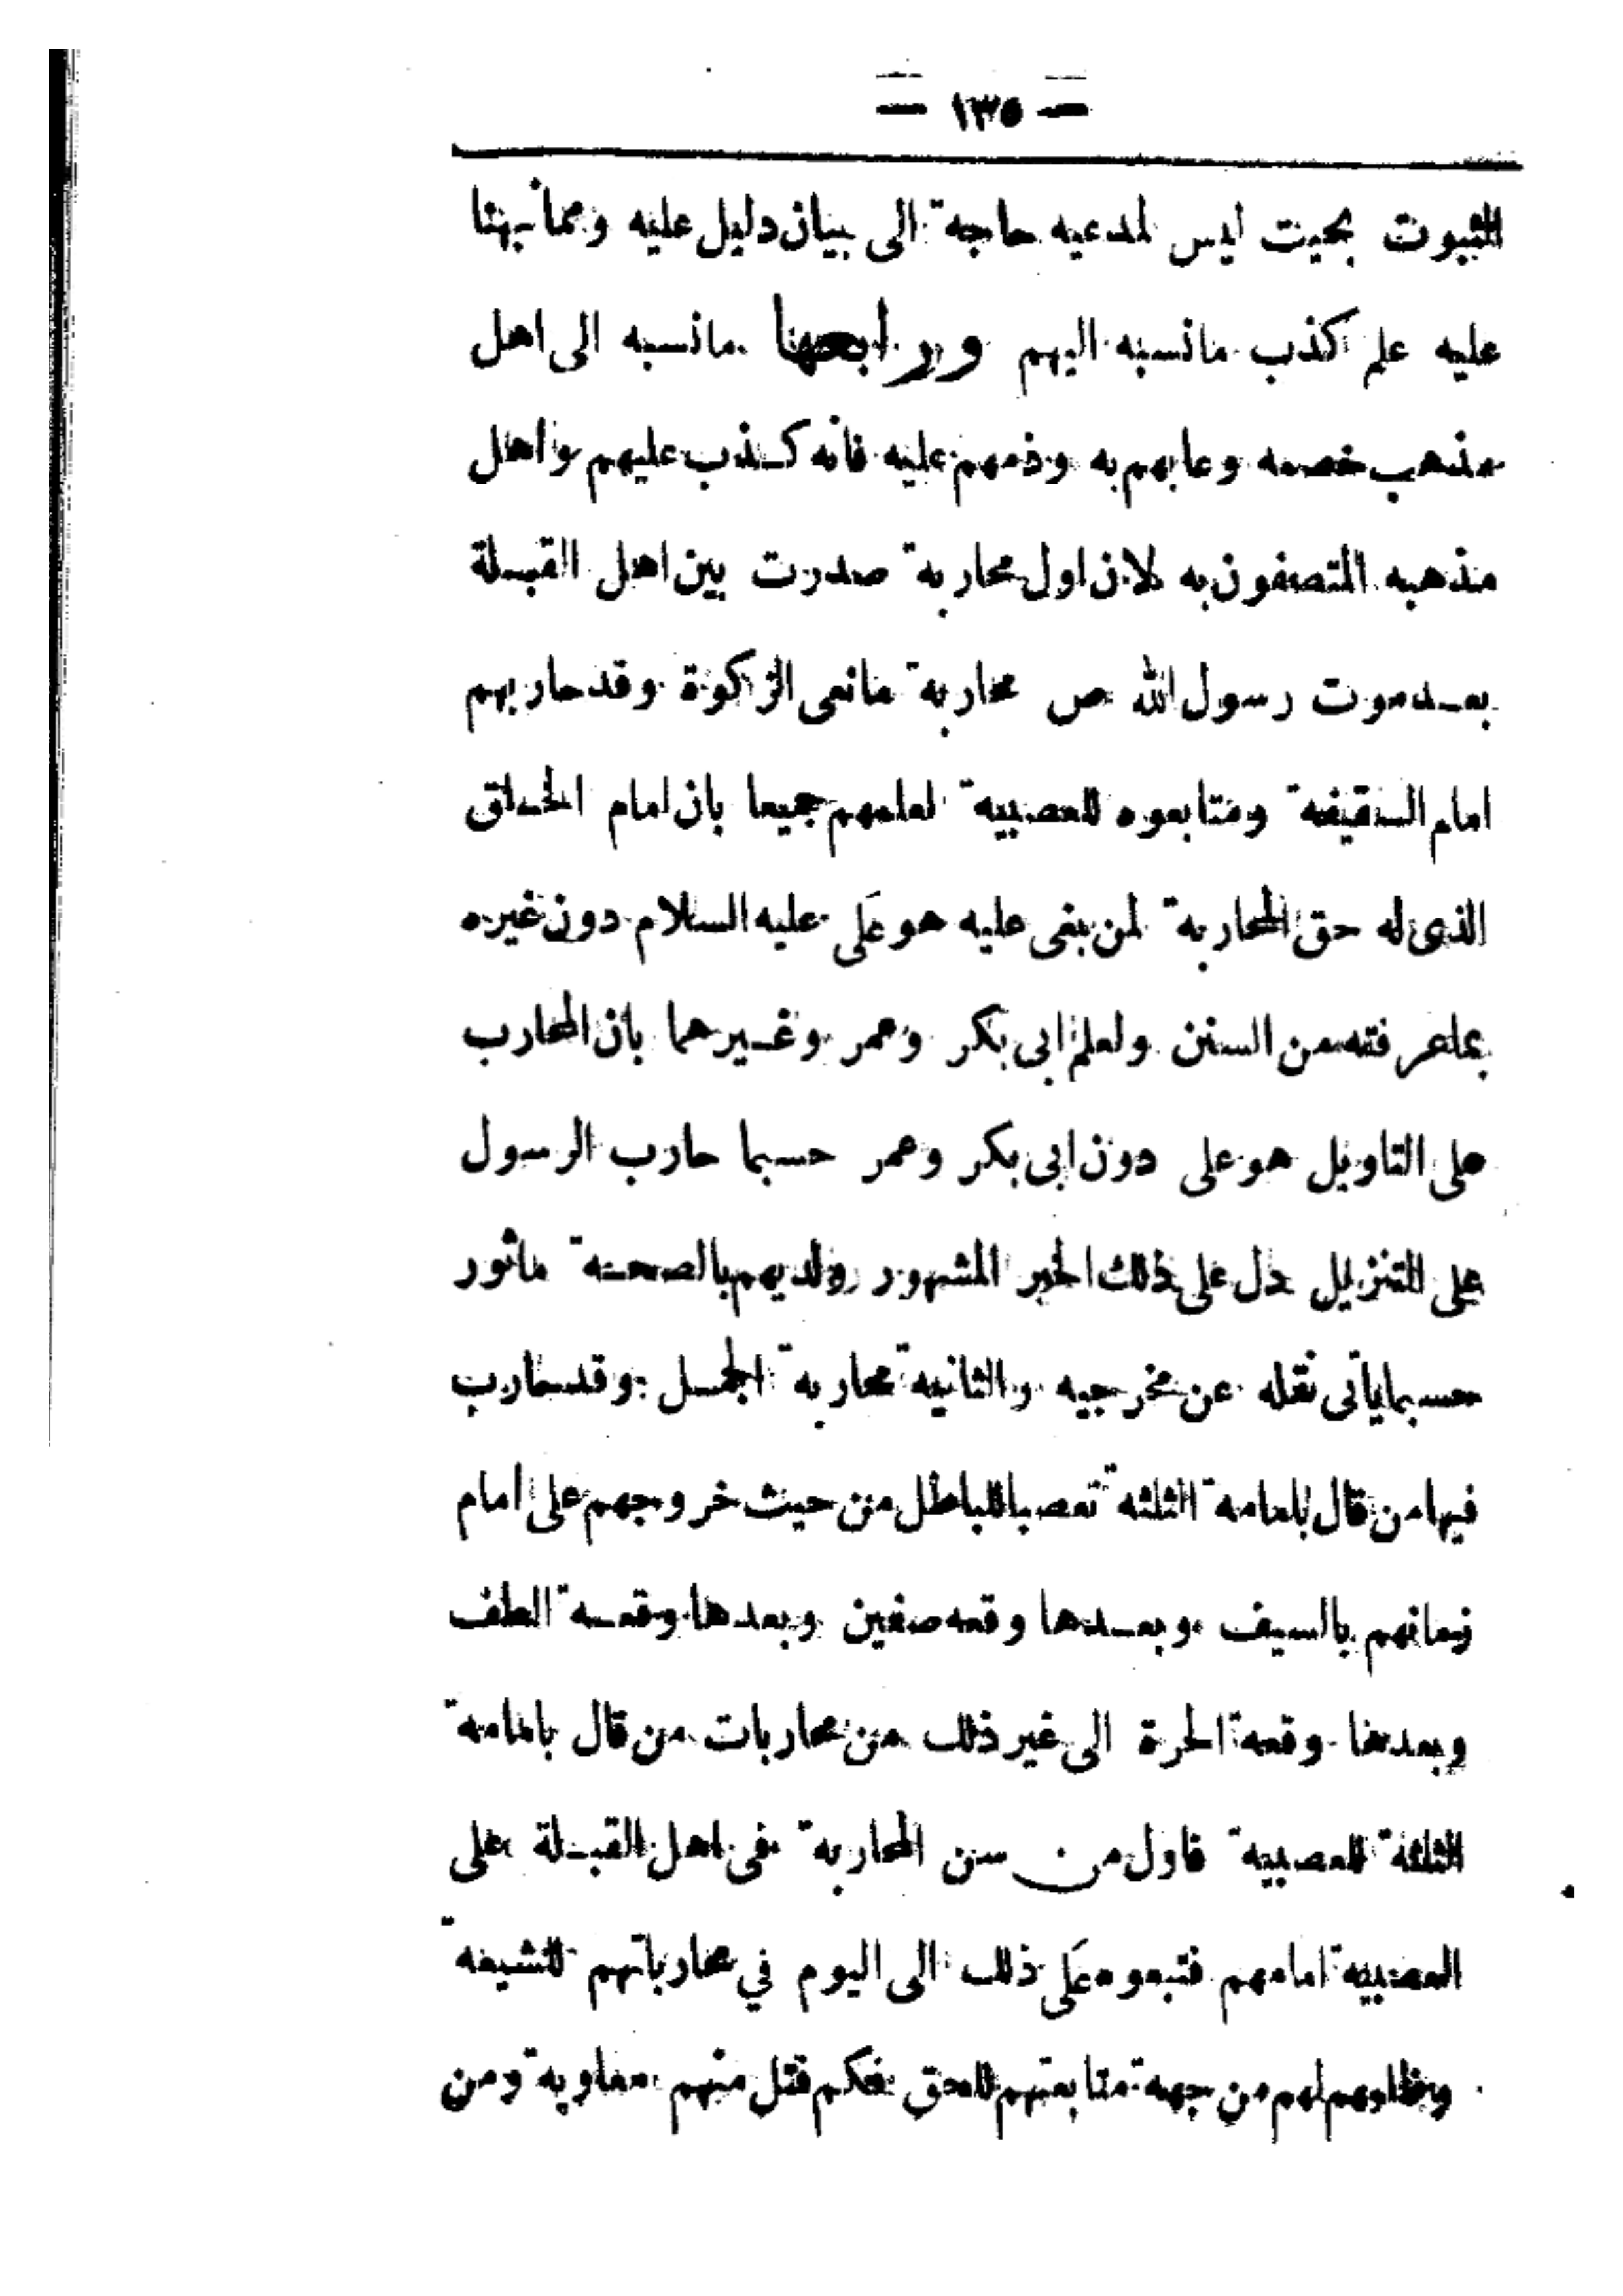 — ١٣٥ —
الثبوت بحيث ليس لمدعيه حاجة الى بيان دليل عليه ومما نبهنا
عليه علم كذب مانسبه اليهم ورابعها مانسبه الى اهل
مذهب خصمه وعابهم به وذمهم عليه فانه كذب عليهم واهل
مذهبه المتصفون به لان اول محاربة صدرت بين اهل القبلة
بعد موت رسول الله ص محاربة مانعى الزكوة وقد حاربهم
امام السقيفة ومتابعوه للعصبية لعلمهم جميعا بان امام الخلق
الذى له حق المحاربة لمن بغى عليه هو على عليه السلام دون غيره
بماعرفته من السنن ولعلم ابى بكر وعمر وغيرهما بان المحارب
على التاويل هو على دون ابى بكر وعمر حسبما حارب الرسول
على التنزيل دل على ذلك الخبر المشهور ولديهم بالصحة ماثور
حسبما ياتى نقله عن مخرجيه والثانية محاربة الجمل وقد حارب
فيها من قال بامامة الثلثة تعصبا للباطل من حيث خروجهم على امام
زمانهم بالسيف وبعدها وقعه صفين وبعدها وقعة الطف
وبعدها وقعة الحرة الى غير ذلك من محاربات من قال بامامة
الثلثة للعصبية فاول من سن المحاربة فى اهل القبلة على
العصبية امامهم فتبعوه على ذلك الى اليوم في محارباتهم للشيعة
وظلمهم لهم من جهة متابعتهم للحق فكم قتل منهم معاوية ومن